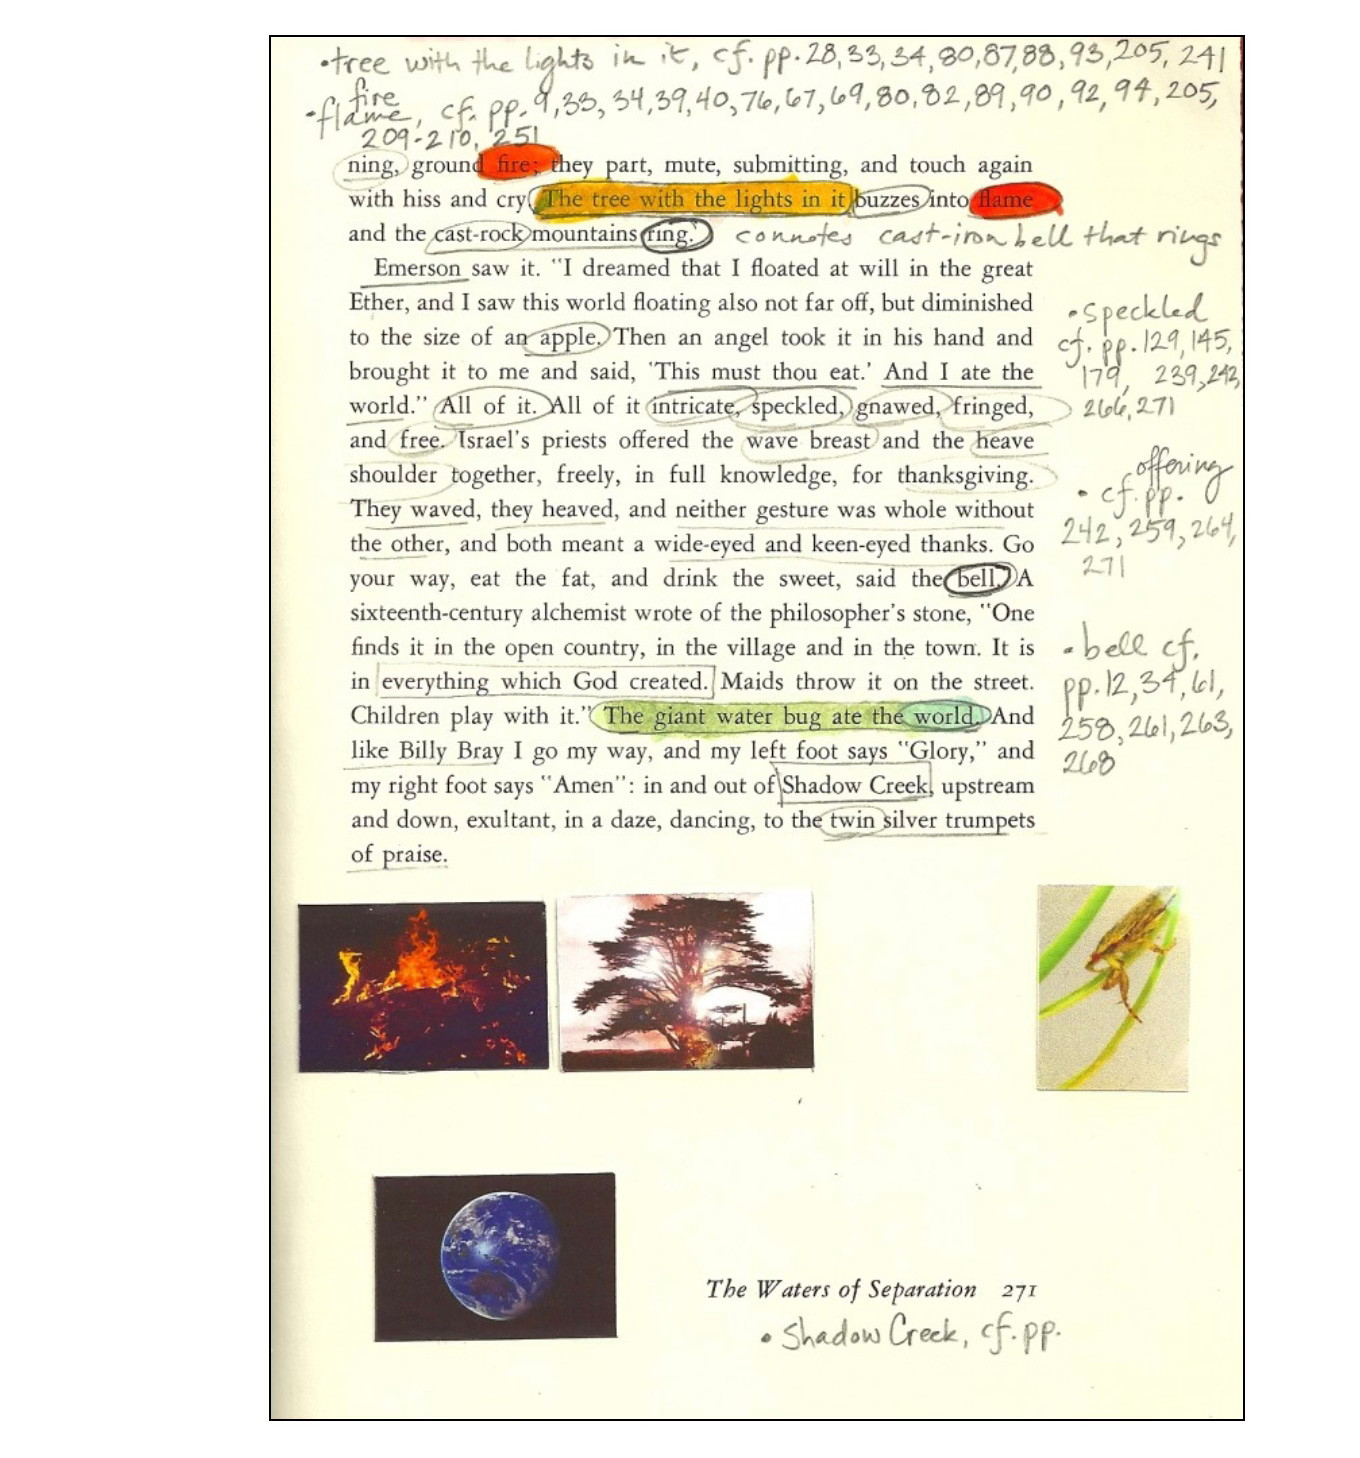 •tree with the lights in it, cf. pp. 28, 33, 34, 80, 87, 88, 93, 205, 241
fire
•flame, cf. pp. 9, 33, 34, 39, 40, 76, 67, 69, 80, 82, 89, 90, 92, 94, 205,
209-210, 251
ning, ground fire; they part, mute, submitting, and touch again
with hiss and cry. The tree with the lights in it buzzes into flame
and the cast-rock mountains ring. connotes cast-iron bell that rings
Emerson saw it. "I dreamed that I floated at will in the great
Ether, and I saw this world floating also not far off, but diminished
to the size of an apple. Then an angel took it in his hand and
brought it to me and said, 'This must thou eat.' And I ate the
world." All of it. All of it intricate, speckled, gnawed, fringed,
and free. Israel's priests offered the wave breast and the heave
shoulder together, freely, in full knowledge, for thanksgiving.
They waved, they heaved, and neither gesture was whole without
the other, and both meant a wide-eyed and keen-eyed thanks. Go
your way, eat the fat, and drink the sweet, said the bell. A
sixteenth-century alchemist wrote of the philosopher's stone, "One
finds it in the open country, in the village and in the town. It is
in everything which God created. Maids throw it on the street.
Children play with it." The giant water bug ate the world. And
like Billy Bray I go my way, and my left foot says "Glory," and
my right foot says "Amen": in and out of Shadow Creek, upstream
and down, exultant, in a daze, dancing, to the twin silver trumpets
of praise.
•speckled
cf. pp. 129, 145,
179, 239, 242,
266, 271
offering
• cf. pp.
242, 259, 264,
271
•bell cf.
pp. 12, 34, 61,
258, 261, 263,
268
The Waters of Separation 271
• Shadow Creek, cf. pp.